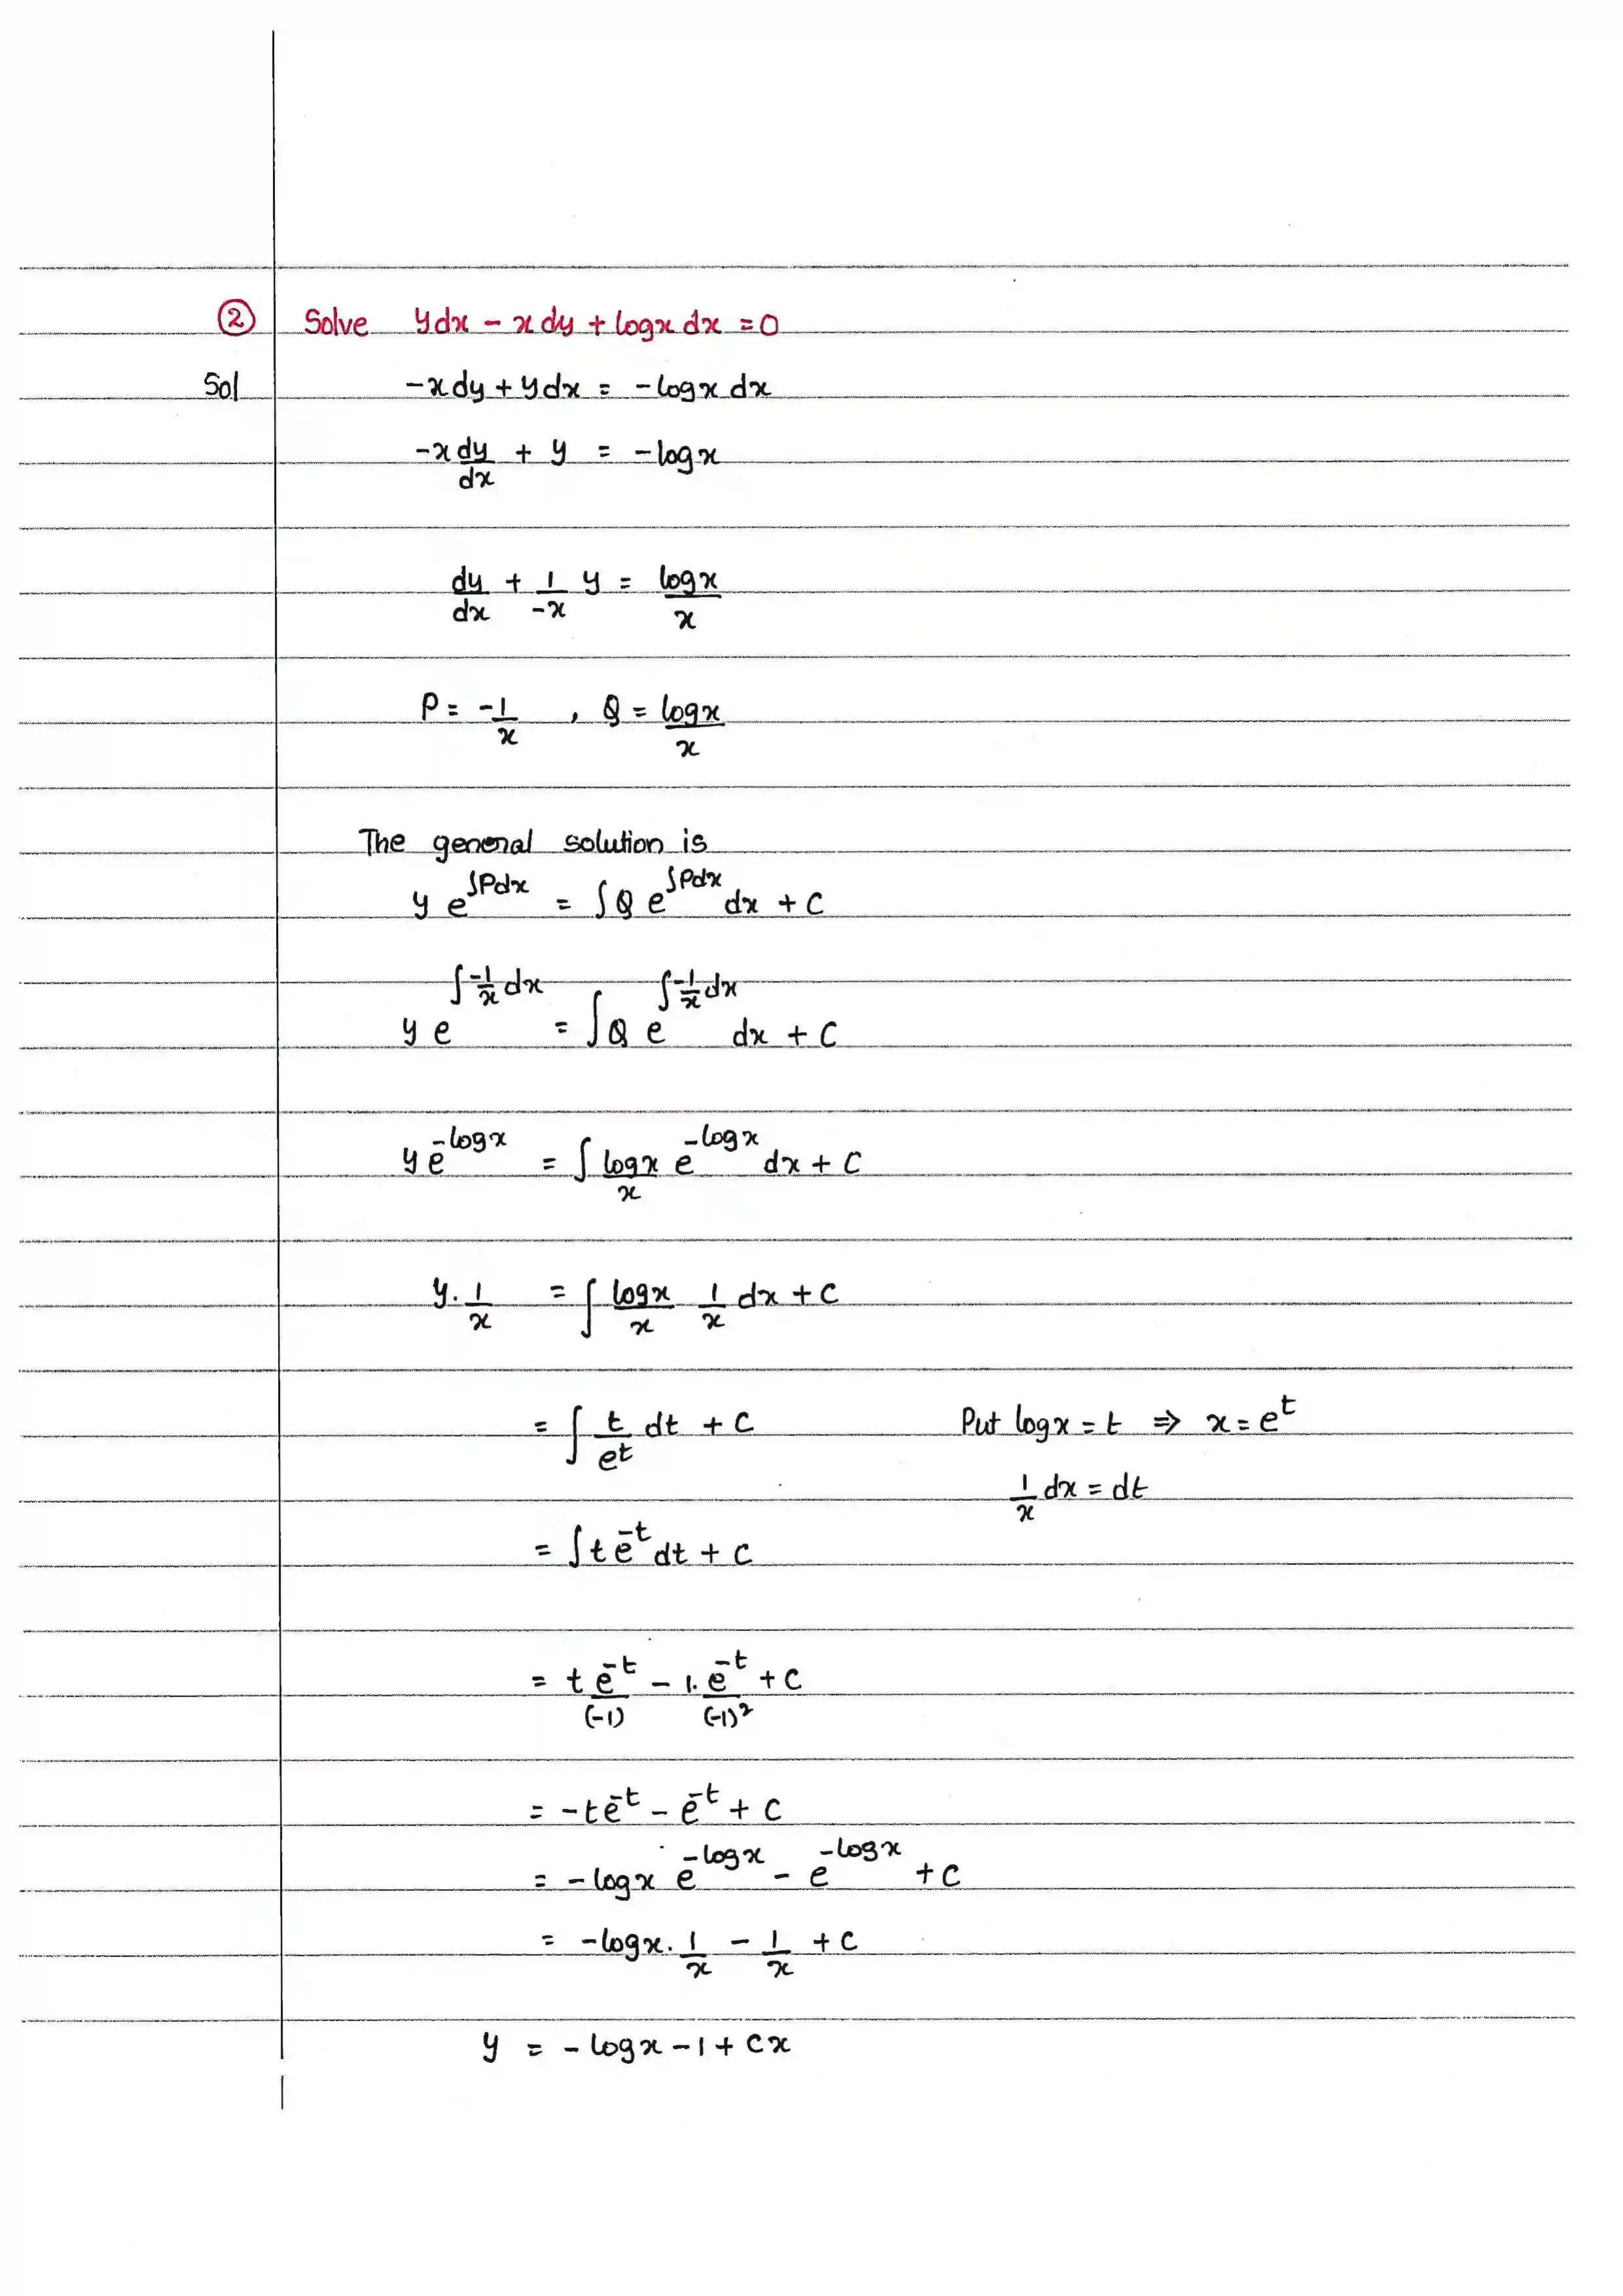 ② Solve ydx - xdy + logx dx = 0
Sol -xdy + ydx = -logx dx
-x dy/dx + y = -logx
dy/dx + 1/-x y = logx/x
P = -1/x , Q = logx/x
The general solution is
y e^∫Pdx = ∫Q e^∫Pdx dx + C
y e^∫-1/x dx = ∫Q e^∫-1/x dx dx + C
y e^-logx = ∫ logx/x e^-logx dx + C
y. 1/x = ∫ logx/x 1/x dx + C
= ∫ t/e^t dt + C Put logx = t ⇒ x = e^t
1/x dx = dt
= ∫t e^-t dt + C
= t e^-t/(-1) - 1. e^-t/(-1)² + C
= -te^-t - e^-t + C
= -logx e^-logx - e^-logx + C
= -logx. 1/x - 1/x + C
y = -logx - 1 + cx